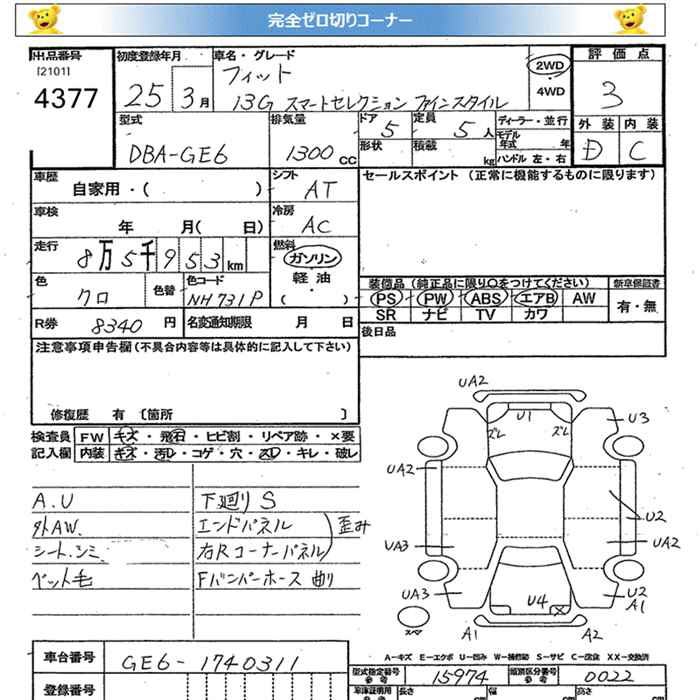 完全ゼロ切りコーナー
出品番号 初度登録年月 車名・グレード 評価点
[2101] フィット 2WD
4377 25 3月 13G スマートセレクション ファインスタイル 4WD 3
型式 排気量 ドア 5 定員 5人 ディーラー・並行 外装 内装
DBA-GE6 1300cc 形状 積載 kg モデル年式 年 D C
ハンドル 左・右
車歴 自家用・( ) シフト AT セールスポイント (正常に機能するものに限ります)
車検 年 月( 日) 冷房 AC
走行 8万5千953km 燃料 ガソリン
軽油
・( )
色 クロ 色替 色コード NH731P
装備品 (純正品に限り○をつけてください) 新車保証書
PS PW ABS エアB AW 有・無
SR ナビ TV カワ
R券 8340円 名変通知期限 月 日 後日品
注意事項申告欄 (不具合内容等は具体的に記入して下さい)
修復歴 有 〔箇所 〕
検査員 FW キズ・飛石・ヒビ割・リペア跡・×要
記入欄 内装 キズ・汚レ・コゲ・穴・スレ・キレ・破レ
A.U 下廻りS
外AW. エンドパネル 歪み
シート.シミ 右Rコーナーパネル
ペット毛 Fバンパーホース 曲り
UA2
U1
ズレ ズレ
U3
UA2
U2
UA3 UA2
UA3 U4 U2
A1
スペア A1 A2
A-キズ E-エクボ U-凹み W-補修跡 S-サビ C-腐食 XX-交換済
車台番号 GE6-1740311
型式指定番号 参考 15974 類別区分番号 参考 0022
登録番号
車庫証明用 参考 長さ cm 幅 cm 高さ cm